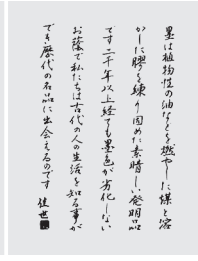 墨は植物性の油などを燃やした煤と溶
かした膠を練り固めた素晴しい発明品
です二千年以上経ても墨色が劣化しない
お蔭で私たちは古代の人の生活を知る事が
でき歴代の名品に出会えるのです
佳世